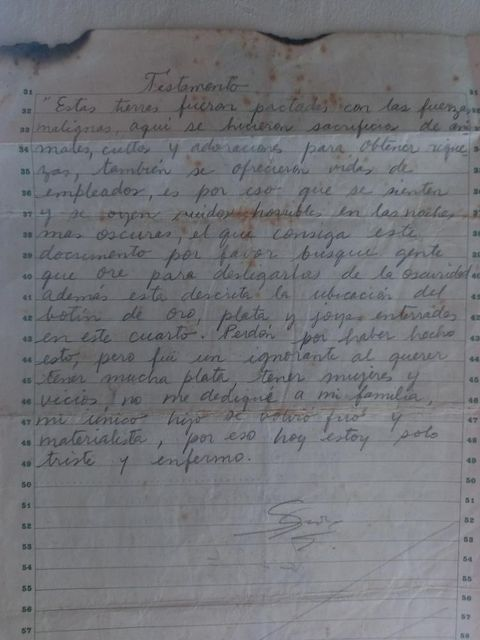 Testamento
31 31
32 "Estas tierras fueron pactadas con las fuerzas
33 malignas, aqui se hicieron sacrificios de ani 33
34 males, cultos y adoraciones para obtener rique
35 zas, también se ofrecieron vidas de 35
36 empleados, es por eso que se sienten 36
37 y se oyen ruidos horribles en las noches 37
38 mas oscuras, el que consiga este 38
39 documento por favor busque gente 39
40 que ore para desligarlas de la oscuridad 40
41 además esta descrita la ubicación del 41
42 botin de oro, plata y joyas enterrados 42
43 en este cuarto. Perdón por haber hecho 43
44 esto, pero fui un ignorante al querer 44
45 tener mucha plata, tener mujeres y 45
46 vicios no me dediqué a mi familia, 46
47 mi único hijo se volvió frio y 47
48 materialista, por eso hoy estoy solo 48
49 triste y enfermo. 49
50 50
51 51
52 52
53 53
54 54
55 55
56 56
57 57
58